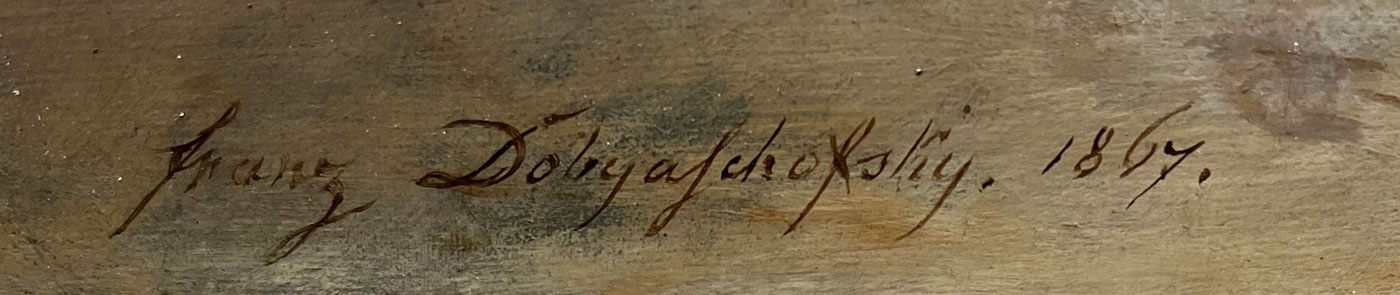 Franz Dobyaschofsky. 1867.